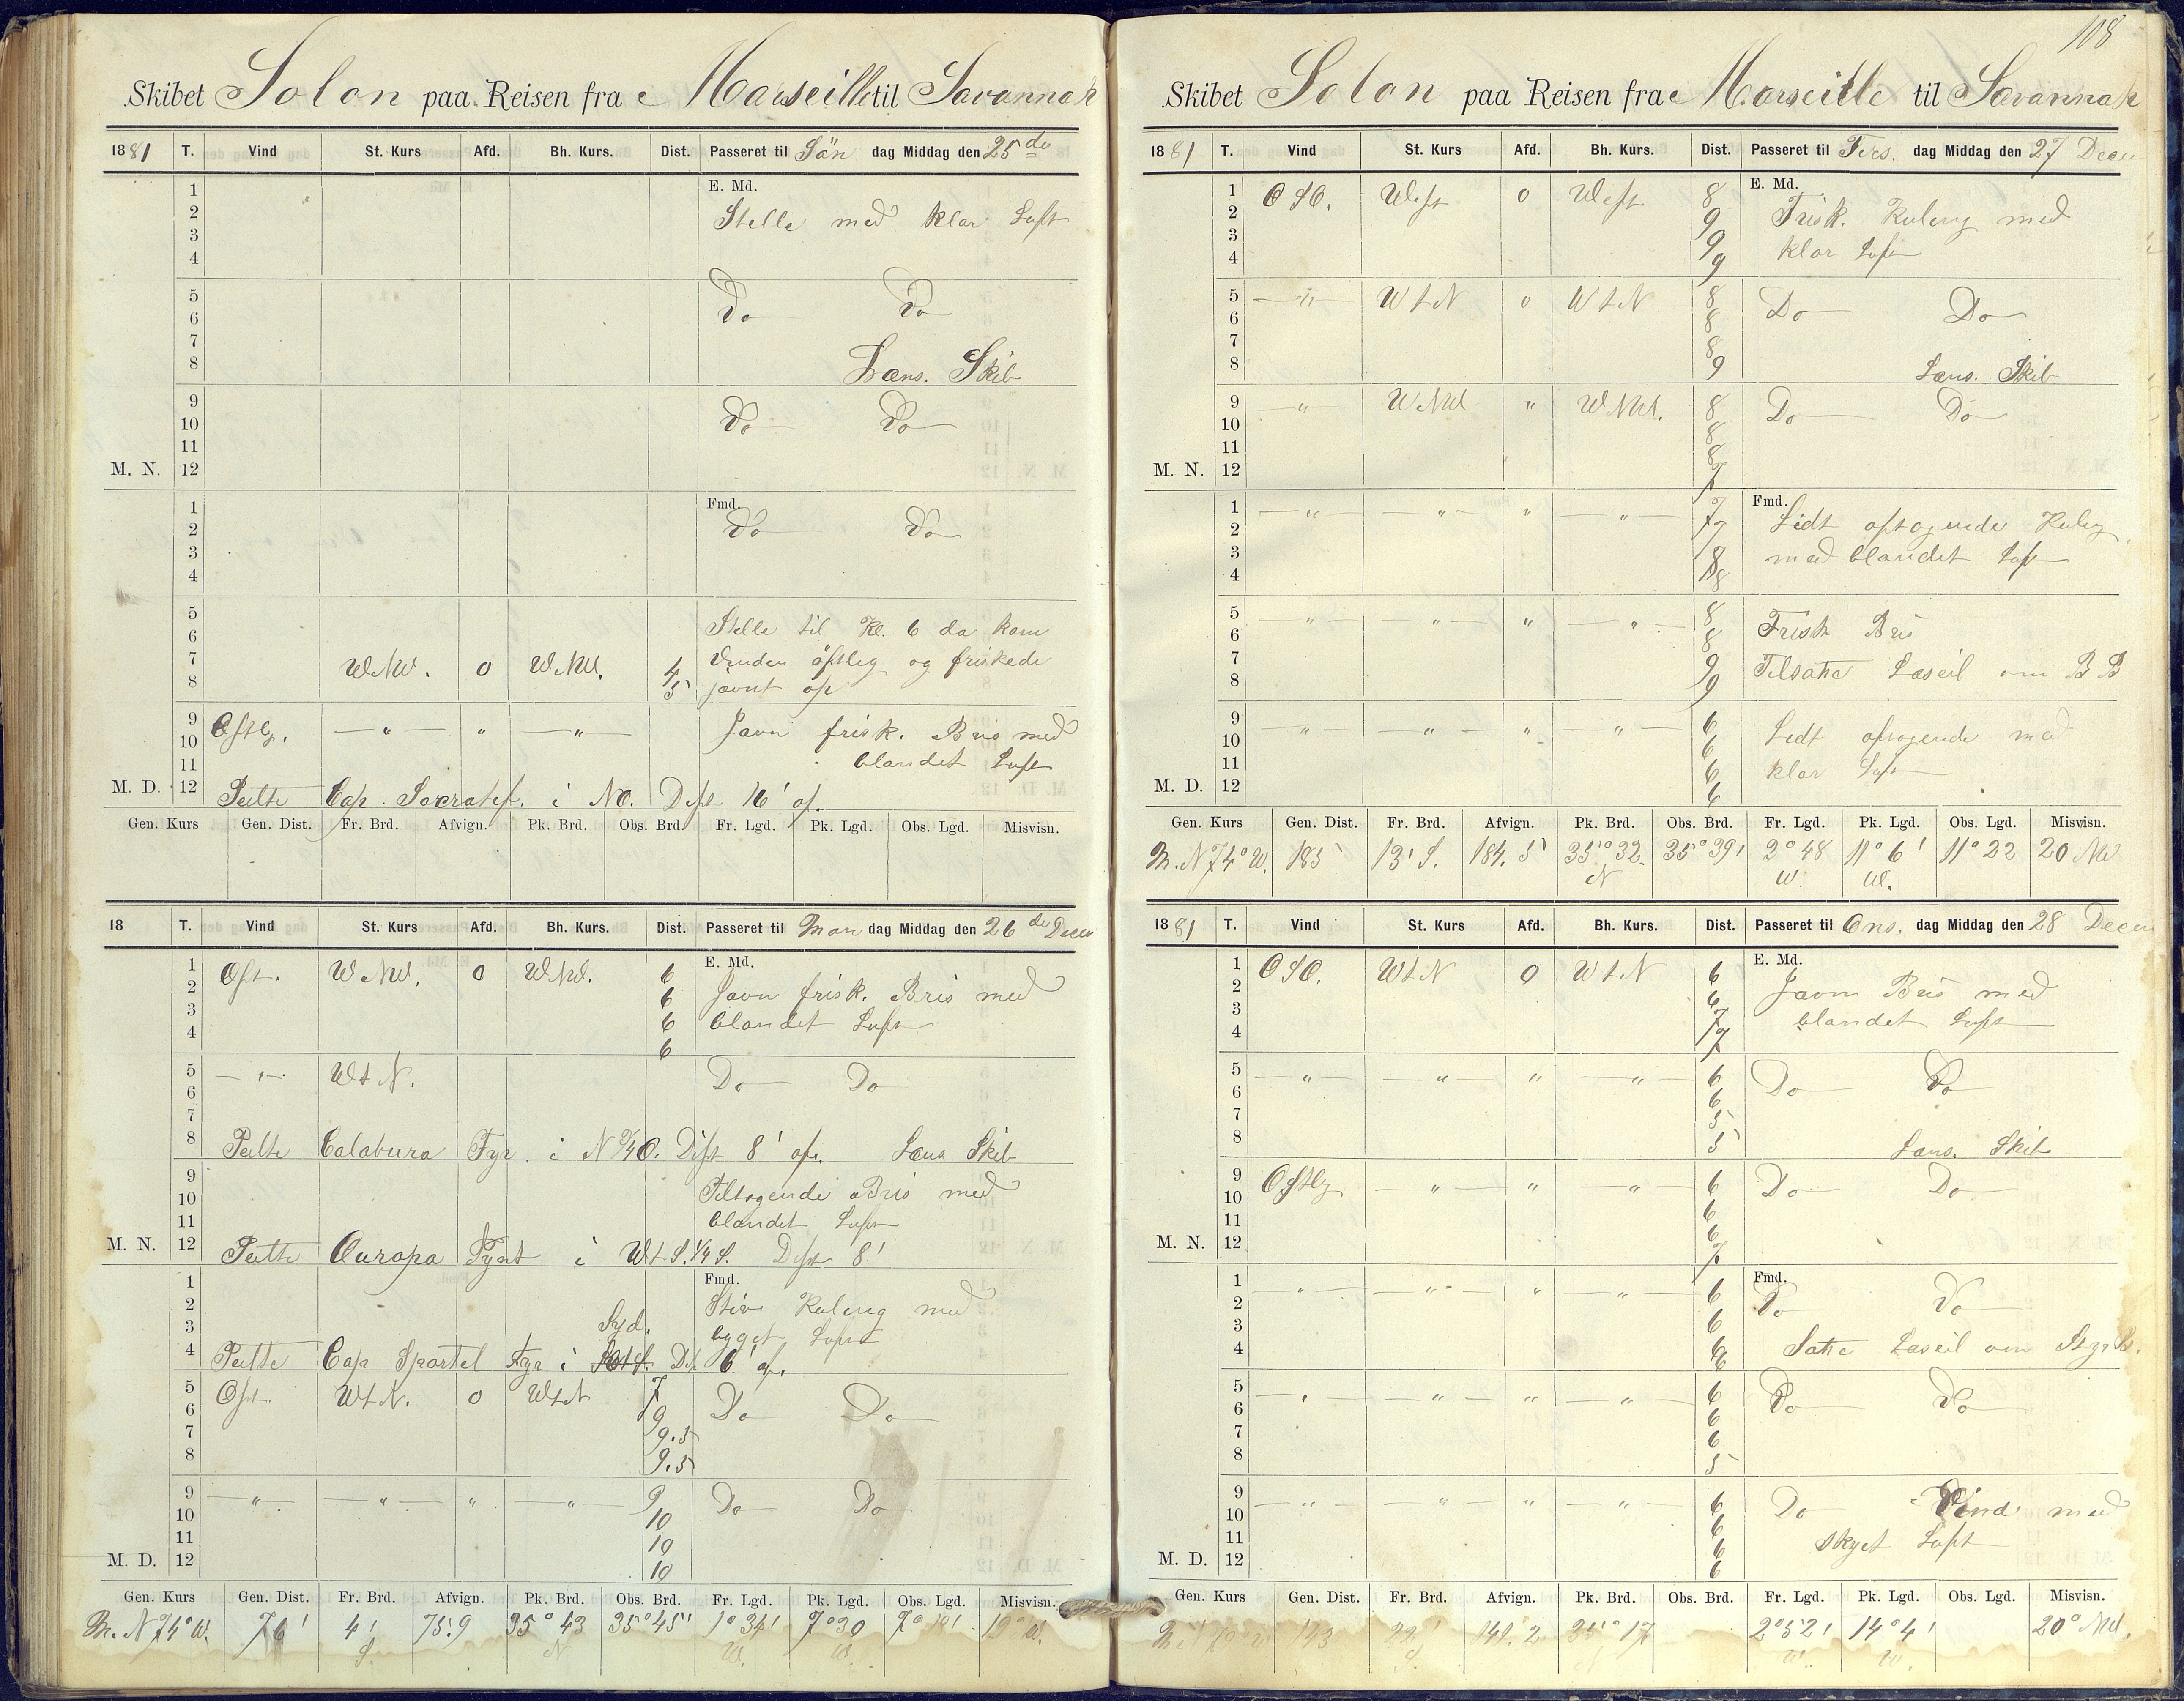 Skibet Solon paa Reisen fra Marseille til Savannah
1881 T. Vind St. Kurs Afd. Bh. Kurs. Dist. Passeret til Søn dag Middag den 25de
E. Md.
1
2 Stelle med klar Luft
3
4
5
6 Do Do
7
8 Læns. Skib
9
10 Do Do
11
M. N. 12
Fmd.
1
2 Do Do
3
4
5 Stelle til Kl. 6 da kom
6
7 WNW. 0 WNW. 4 Vinden östleg og friskede
8 5 jævnt op
9 Ostlg. — " — " — " — Javn frisk. Bris med
10
11 blandet Luft
M. D. 12 Peilte Cap Socratef. i NO. Dist 16' of.
Gen. Kurs Gen. Dist. Fr. Brd. Afvign. Pk. Brd. Obs. Brd. Fr. Lgd. Pk. Lgd. Obs. Lgd. Misvisn.
18 T. Vind St. Kurs Afd. Bh. Kurs. Dist. Passeret til Man dag Middag den 26de Decem
E. Md.
1 Ost. WNW. 0 WNW. 6
2 6 Javn frisk. Bris med
3 6 blandet Luft
4 6
5 — " — WtN. Do Do
6
7
8 Peilte Calabura Fyr i N¾O. Dist 8' of. Læns Skib
9 Tiltagende Bris med
10
11 blandet Luft
M. N. 12 Peilte Europa Pynt i WtS.¼S. Dist 8'
Fmd.
1
2 Stiv Kuling med
3 Syd. bygget Luft
4 Peilte Cap Spartel Fyr i Dis. 6' of.
5 Ost. WtN. 0 WtN 7
6 9 Do Do
7 9.5
8 9.5
9 — " — — " — " — " — 9 Do Do
10 10
11 10
M. D. 12 10
Gen. Kurs Gen. Dist. Fr. Brd. Afvign. Pk. Brd. Obs. Brd. Fr. Lgd. Pk. Lgd. Obs. Lgd. Misvisn.
M. N 74° W. 76' 4' 75.9 35° 43 35° 45' 1° 34' 7° 30 7° 10' 19° W.
S. N W. W.
108
Skibet Solon paa Reisen fra Marseille til Savannah
1881 T. Vind St. Kurs Afd. Bh. Kurs. Dist. Passeret til Tirs. dag Middag den 27 Decem
E. Md.
1 OSO. West 0 West 8
2 9 Frisk. Kuling med
3 9 klar Luft
4 9
5 — " — WtN 0 WtN 8 Do Do
6 8
7 8
8 9 Læns. Skib
9 — " WNW " WNW. 8 Do Do
10 8
11 8
M. N. 12 7
Fmd.
1 — " — — " — " — " — 7 Lidt aftagende Kuling
2 7
3 8 med blandet Luft
4 8
5 — " — — " — " — " — 8
6 8 Frisk Bris
7 9 Tilsatte Læseil om BB
8 9
9 — " — — " — " — " — 6 Lidt aftagende med
10 6
11 6 klar Luft
M. D. 12 6
Gen. Kurs Gen. Dist. Fr. Brd. Afvign. Pk. Brd. Obs. Brd. Fr. Lgd. Pk. Lgd. Obs. Lgd. Misvisn.
M. N 74° W. 185 13' S. 184.5 35° 32 35° 39' 2° 48 11° 6' 11° 22 20 NW
N W. W.
1881 T. Vind St. Kurs Afd. Bh. Kurs. Dist. Passeret til Ons. dag Middag den 28 Decem
E. Md.
1 OSO. WtN 0 WtN 6
2 6 Javn Bris med
3 7 blandet Luft
4 7
5 — " — — " — " — " — 6 Do Do
6 6
7 5
8 5 Læns. Skib
9 Ostlig — " — " — " — 6 Do Do
10 6
11 6
M. N. 12 7
Fmd.
1 — " — — " — " — " — 6 Do Do
2 6
3
4 6 Satte Læseil om Styrb.
5 — " — — " — " — " — 6 Do Do
6 6
7 6
8 5
9 — " — — " — " — " — 6 Do Vind med
10 6
11 6 skyet Luft
M. D. 12 6
Gen. Kurs Gen. Dist. Fr. Brd. Afvign. Pk. Brd. Obs. Brd. Fr. Lgd. Pk. Lgd. Obs. Lgd. Misvisn.
143 22' 141.2 35° 17 2° 52' 14° 4' 20° NW.
S. N W. W.